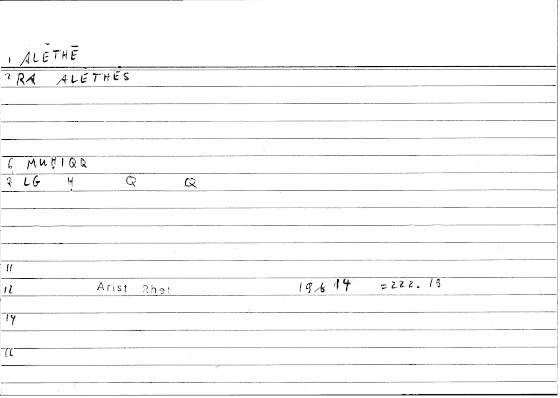 1 ALĒTHĒ
2 RA ALETHES
6 MUḤIQQ
7 LG Ḥ Q Q
11
12 Arist Rhet 196 14 =222.15
14
16